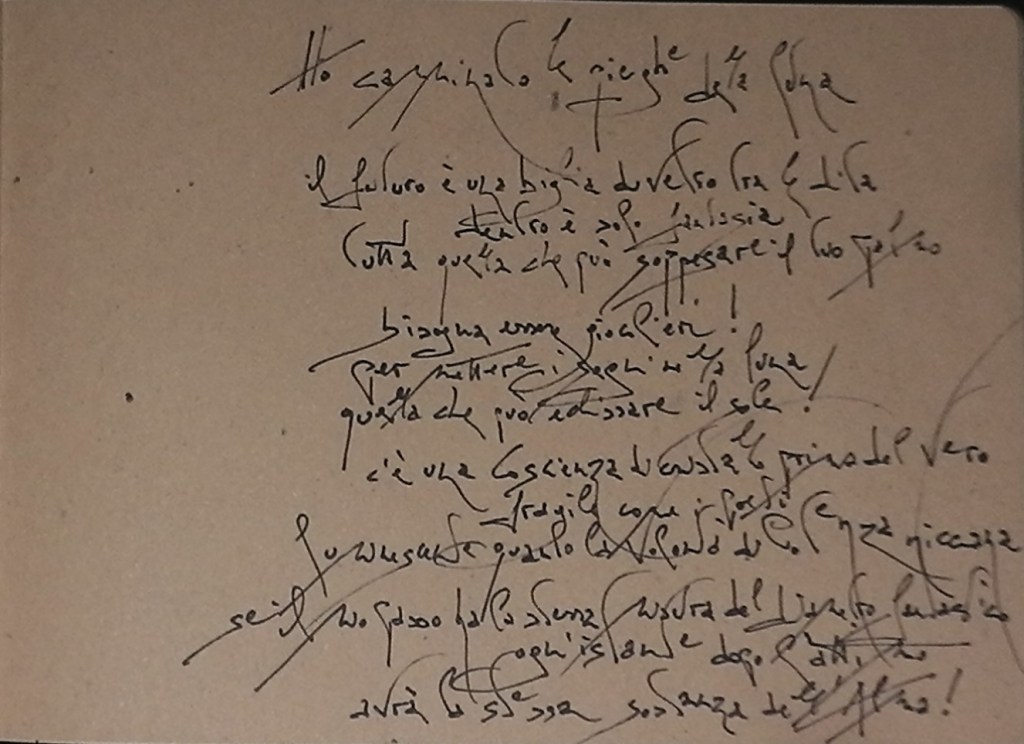 Ho camminato le pieghe della luna
il futuro è una biglia di vetro tra le dita
dentro è solo fantasia
tutta quella che può soppesare il tuo palmo
bisogna essere giocolieri!
per mettere i sogni nella luna
quella che può eclissare il sole!
c'è una coscienza di cristallo prima del vero
fragile come i forti
quanto la di
se il tuo passo ha la stessa del pianeta
ogni istante dopo l'attimo
avrà la stessa sostanza dell'Alma!